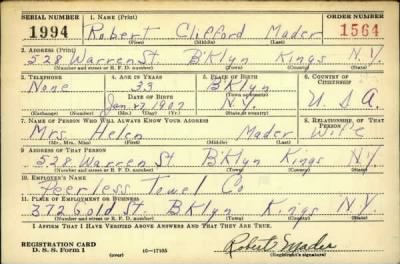 SERIAL NUMBER 1. NAME (Print) ORDER NUMBER
1994 Robert Clifford Mader 1564
(First) (Middle) (Last)
2. ADDRESS (Print)
528 Warren St. B'klyn Kings N.Y.
(Number and street or R. F. D. number) (Town) (County) (State)
3. TELEPHONE 4. AGE IN YEARS 5. PLACE OF BIRTH 6. COUNTRY OF CITIZENSHIP
None 33 B'klyn
DATE OF BIRTH (Town or county)
Jan. 27 1907 N.Y. U.S.A.
(Exchange) (Number) (Mo.) (Day) (Yr.) (State or country)
7. NAME OF PERSON WHO WILL ALWAYS KNOW YOUR ADDRESS 8. RELATIONSHIP OF THAT PERSON
Mrs. Helen Mader Wife
(Mr., Mrs., Miss) (First) (Middle) (Last)
9. ADDRESS OF THAT PERSON
528 Warren St B'klyn Kings N.Y.
(Number and street or R. F. D. number) (Town) (County) (State)
10. EMPLOYER'S NAME
Peerless Towel Co
11. PLACE OF EMPLOYMENT OR BUSINESS
372 Gold St. B'klyn Kings N.Y.
(Number and street or R. F. D. number) (Town) (County) (State)
I AFFIRM THAT I HAVE VERIFIED ABOVE ANSWERS AND THAT THEY ARE TRUE.
REGISTRATION CARD
D. S. S. Form 1 (over) 16-17105 Robert Mader
(Registrant's signature)